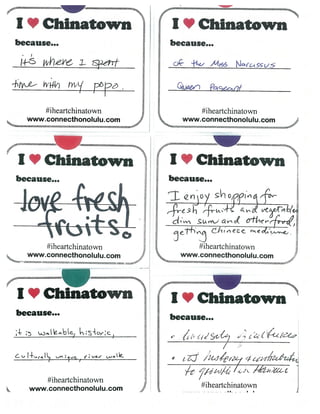 I ♥ Chinatown
because...
it's where I spent
time with my popo.
#iheartchinatown
www.connecthonolulu.com
I ♥ Chinatown
because...
of the Miss Narcissus
Queen Pageant
#iheartchinatown
www.connecthonolulu.com
I ♥ Chinatown
because...
love fresh
fruits!
#iheartchinatown
www.connecthonolulu.com
I ♥ Chinatown
because...
I enjoy shopping for
fresh fruits and vegetables
dim sum and other food,
getting Chinese medicine.
#iheartchinatown
www.connecthonolulu.com
I ♥ Chinatown
because...
it is walkable, historic,
culturally unique, river walk
#iheartchinatown
www.connecthonolulu.com
I ♥ Chinatown
because...
• diversity of cultures
• its history & contribution
to growth in Hawaii
#iheartchinatown
www.connecthonolulu.com